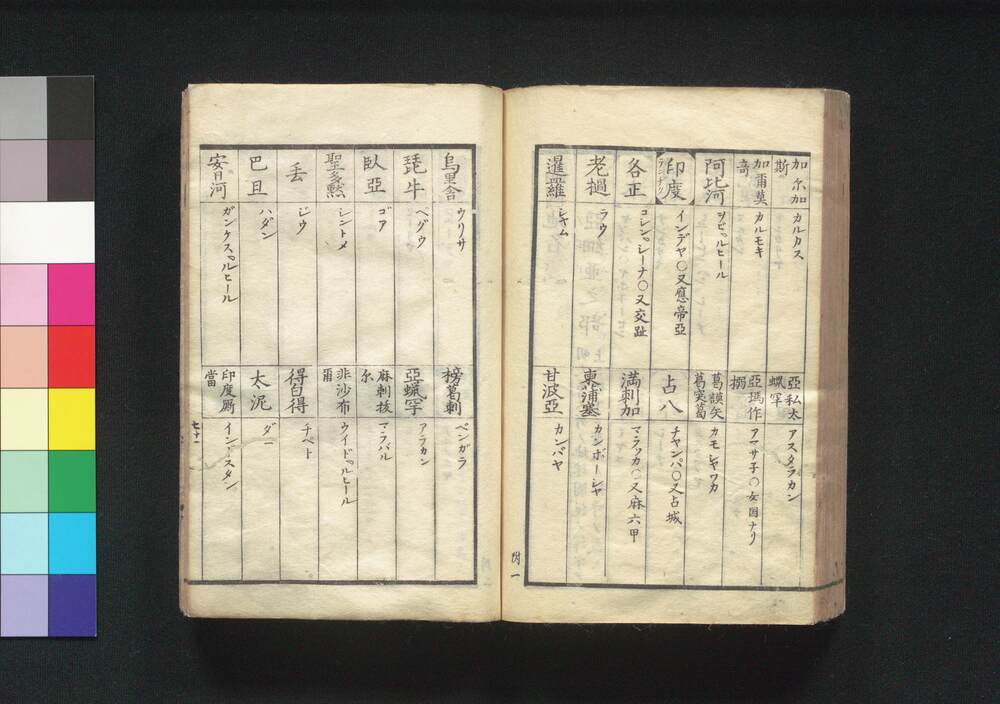 加尓加斯 カルカス
加爾莫竒 カルモキ
阿比河 ヲビ、ルヒール
印度 インデヤ○又應帝亞
各正 コシン、シーナ○又交趾
老撾 ラウ
暹羅 シャム
亞私太蠟罕 アスタラカン
亞瑪作搦 アマサ子○女国ナリ
葛謨矢葛宻葛 カモシャワカ
占八 チャンパ○又占城
満剌加 マラッカ○又麻六甲
柬浦塞 カンボーシャ
甘波亞 カンバヤ
閃一
烏里舎 ウリサ
琵牛 ペグウ
臥亞 ゴア
聖多黙 シントメ
丢 ジウ
巴旦 ハダン
安日河 ガンケス、ルヒール
榜葛剌 ベンガラ
亞蠟罕 アラカン
麻剌抜尓 マラバル
非沙布爾 ウイド、ルヒール
得白得 チベト
太泥 ダニ
印度厮當 インドスタン
七十一